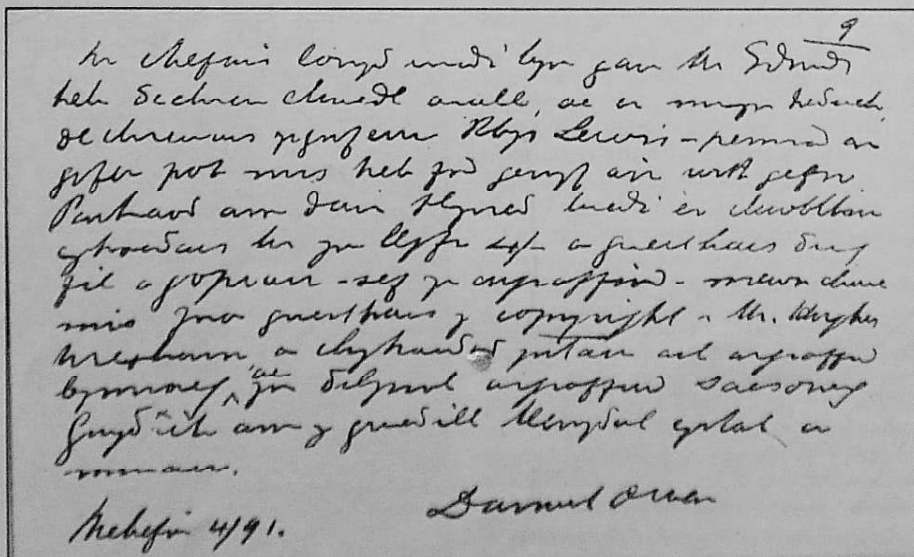 9
Ni chefais lonydd wedi hyn gan Mr Edwards
heb ddechreu chwedl arall, ac er mwyn heddwch,
dechreuais ysgrifenu Rhys Lewis - pennod ar
gyfer pob mis heb fod genyf air wrth gefn.
Parhaodd am dair blynedd wedi ei chwblhau
cyhoeddais hi yn llyfr a gwerthais ddwy
fil o gopiau - sef yr argraffiad - mewn chwe
mis Yna gwerthais y copyright i Mr. Hughes
Wrexham a chyhoeddodd yntau ail argraffiad
Cymraeg, ac yn ddilynol argraffiad Saesoneg
Gwyddoch am y gweddill llenyddol cystal a
minnau.
Mehefin 4/91. Daniel Owen